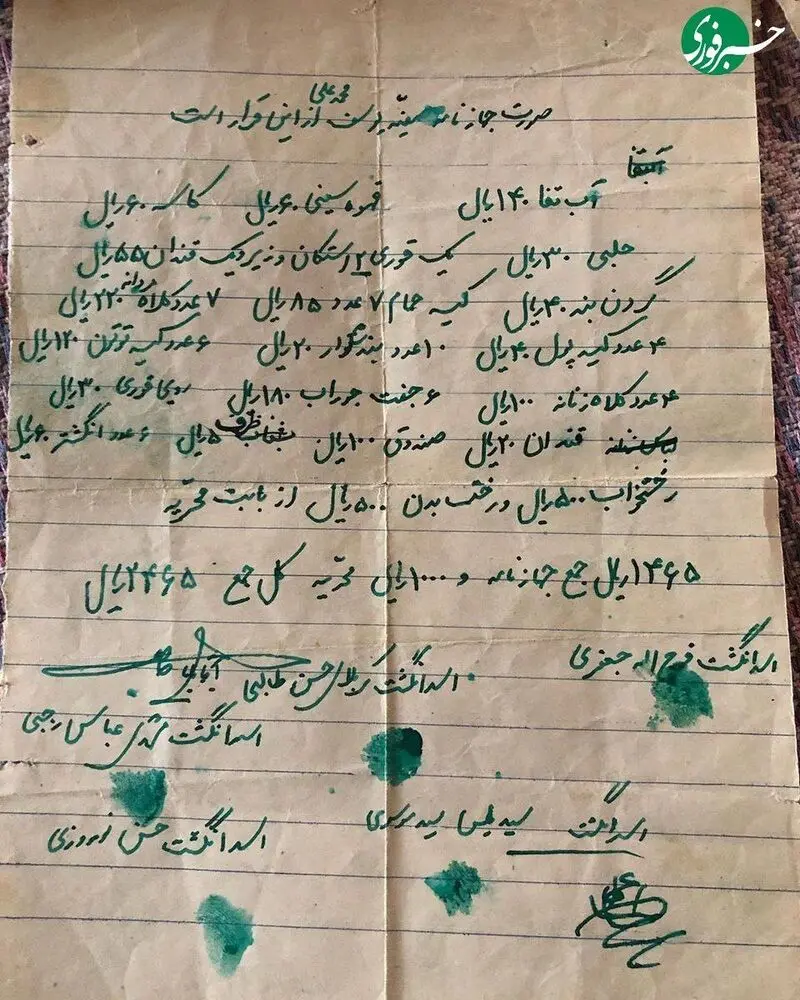 خبر فوری
محمد علی
صورت جهاز نامه از این قرار است
آب تفا ۱۴۰ ریال قهوه سینی ۶۰ ریال کاسه ۶۰ ریال
حلبی ۳۰ ریال یک قوری ۲ استکان و زیر و یک قندان ۵۵ ریال
گردن بند ۴۰ ریال کیسه حمام ۷ عدد ۸۵ ریال ۷ عدد کلاه مردانه ۲۲۰ ریال
۴ عدد کیسه پول ۴۰ ریال ۱۰ عدد بند شلوار ۲۰ ریال ۶ عدد کیسه توتون ۱۲۰ ریال
۴ عدد کلاه زنانه ۱۰۰ ریال ۶ جفت جوراب ۱۸۰ ریال روی قوری ۳۰ ریال
قندان ۲۰ ریال صندوق ۱۰۰ ریال ظرف ۵ ریال ۶ عدد انگشتر ۶۰ ریال
رختخواب ۵۰۰ ریال و رخت بدن ۵۰۰ ریال از بابت مهریه
۱۴۶۵ ریال جمع جهاز نامه و ۱۰۰۰ ریال مهریه کل جمع ۲۴۶۵ ریال
اثر انگشت فرج اله جعفری
اثر انگشت کربلائی حسن طالبی
اثر انگشت مشهدی عباس رجبی
اثر انگشت سید سید موسوی
اثر انگشت حسن نوروزی